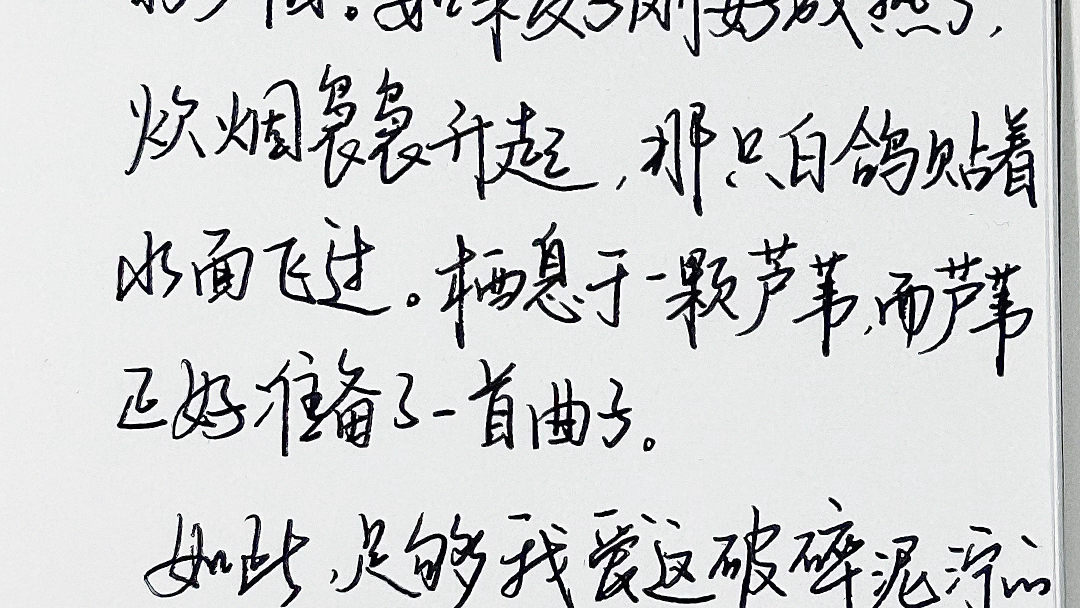 如果麦子刚好成熟了，
炊烟袅袅升起，那只白鸽贴着
水面飞过。栖息于一颗芦苇，而芦苇
正好准备了一首曲子。
如此，足够我爱这破碎泥泞的